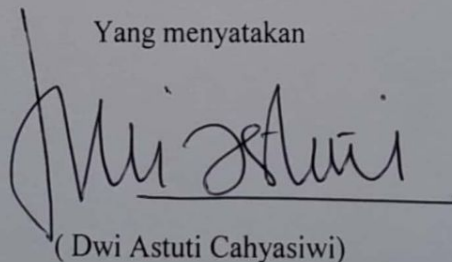 Yang menyatakan
Dwi Astuti
( Dwi Astuti Cahyasiwi)